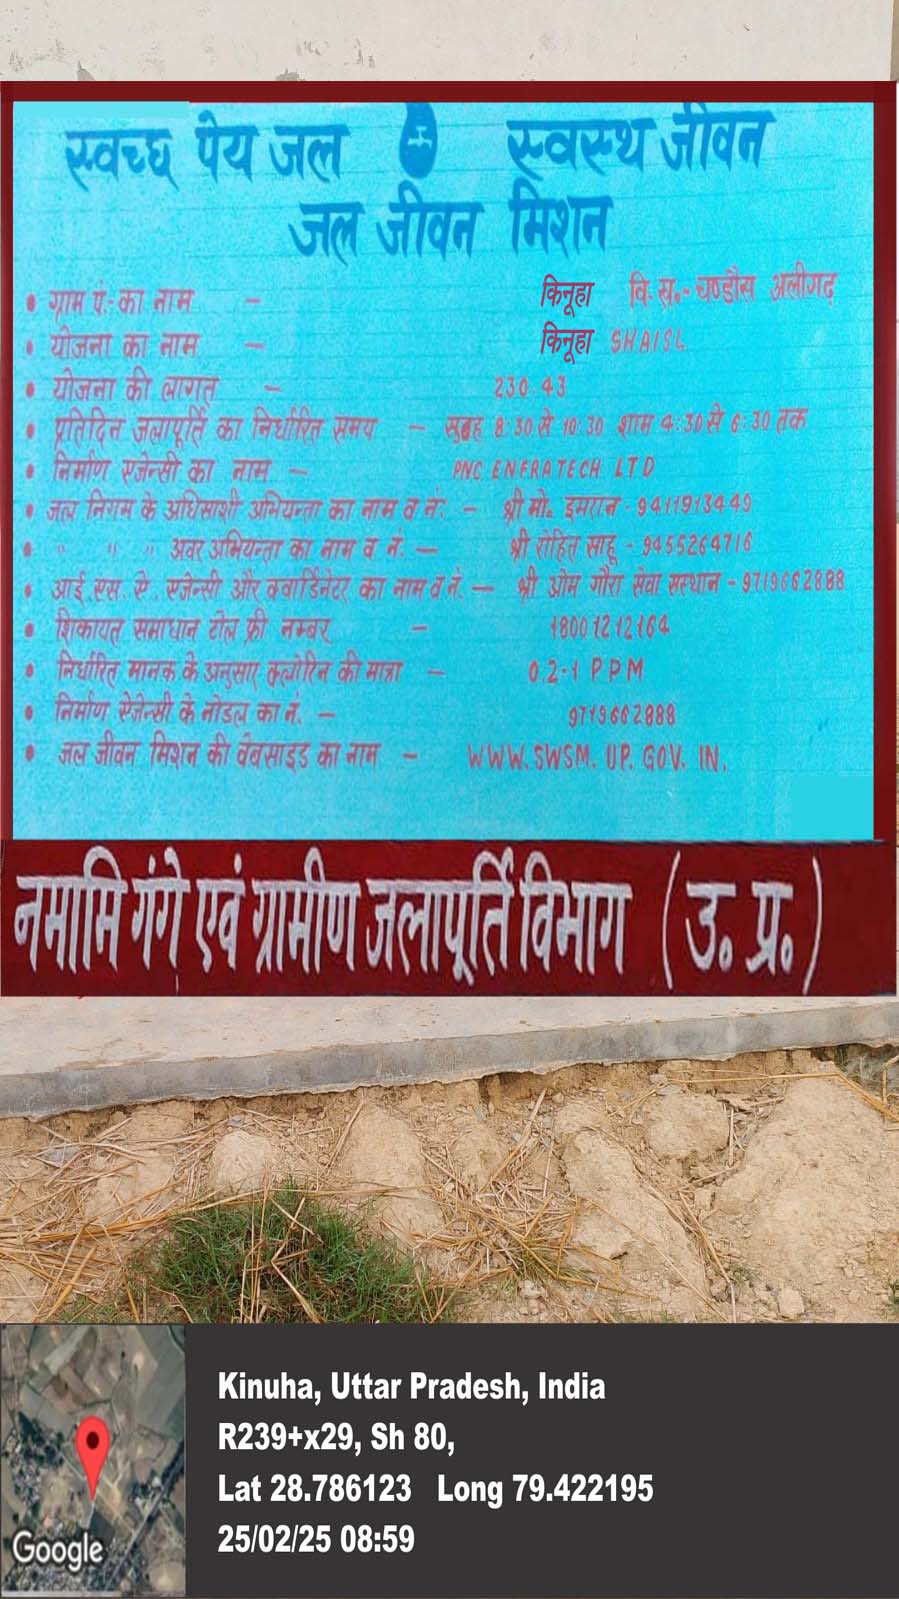 स्वच्छ पेय जल स्वस्थ जीवन
जल जीवन मिशन
• ग्राम पं:-का नाम - किनूहा वि.ख.- चण्डौस अलीगढ़
• योजना का नाम - किनूहा SHAISL
• योजना की लागत - 230.43
• प्रतिदिन जलापूर्ति का निर्धारित समय - सुबह 8:30 से 10:30 शाम 4:30 से 6:30 तक
• निर्माण एजेन्सी का नाम - PNC ENFRATECH LTD
• जल निगम के अधिसाशी अभियन्ता का नाम व नं: - श्री मो. इमरान - 9411913449
• " " " अवर अभियन्ता का नाम व नं. - श्री रोहित साहू - 9455264716
• आई.एस.ए. एजेन्सी और क्वार्डिनेटर का नाम व नं. - श्री ओम गौरा सेवा सस्थान - 9719662888
• शिकायत समाधान टोल फ्री नम्बर - 18001212164
• निर्धारित मानक के अनुसार क्लोरिन की मात्रा - 0.2-1 PPM
• निर्माण ऐजेन्सी के नोडल का नं. - 9719662888
• जल जीवन मिशन की वेबसाइड का नाम - WWW.SWSM.UP.GOV.IN.
नमामि गंगे एवं ग्रामीण जलापूर्ति विभाग (उ. प्र.)
Kinuha, Uttar Pradesh, India
R239+x29, Sh 80,
Lat 28.786123 Long 79.422195
25/02/25 08:59
Google